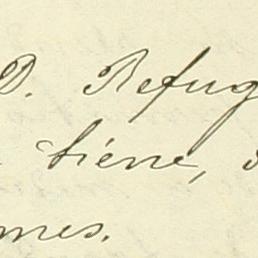 D. Refug
tiene,
mes.